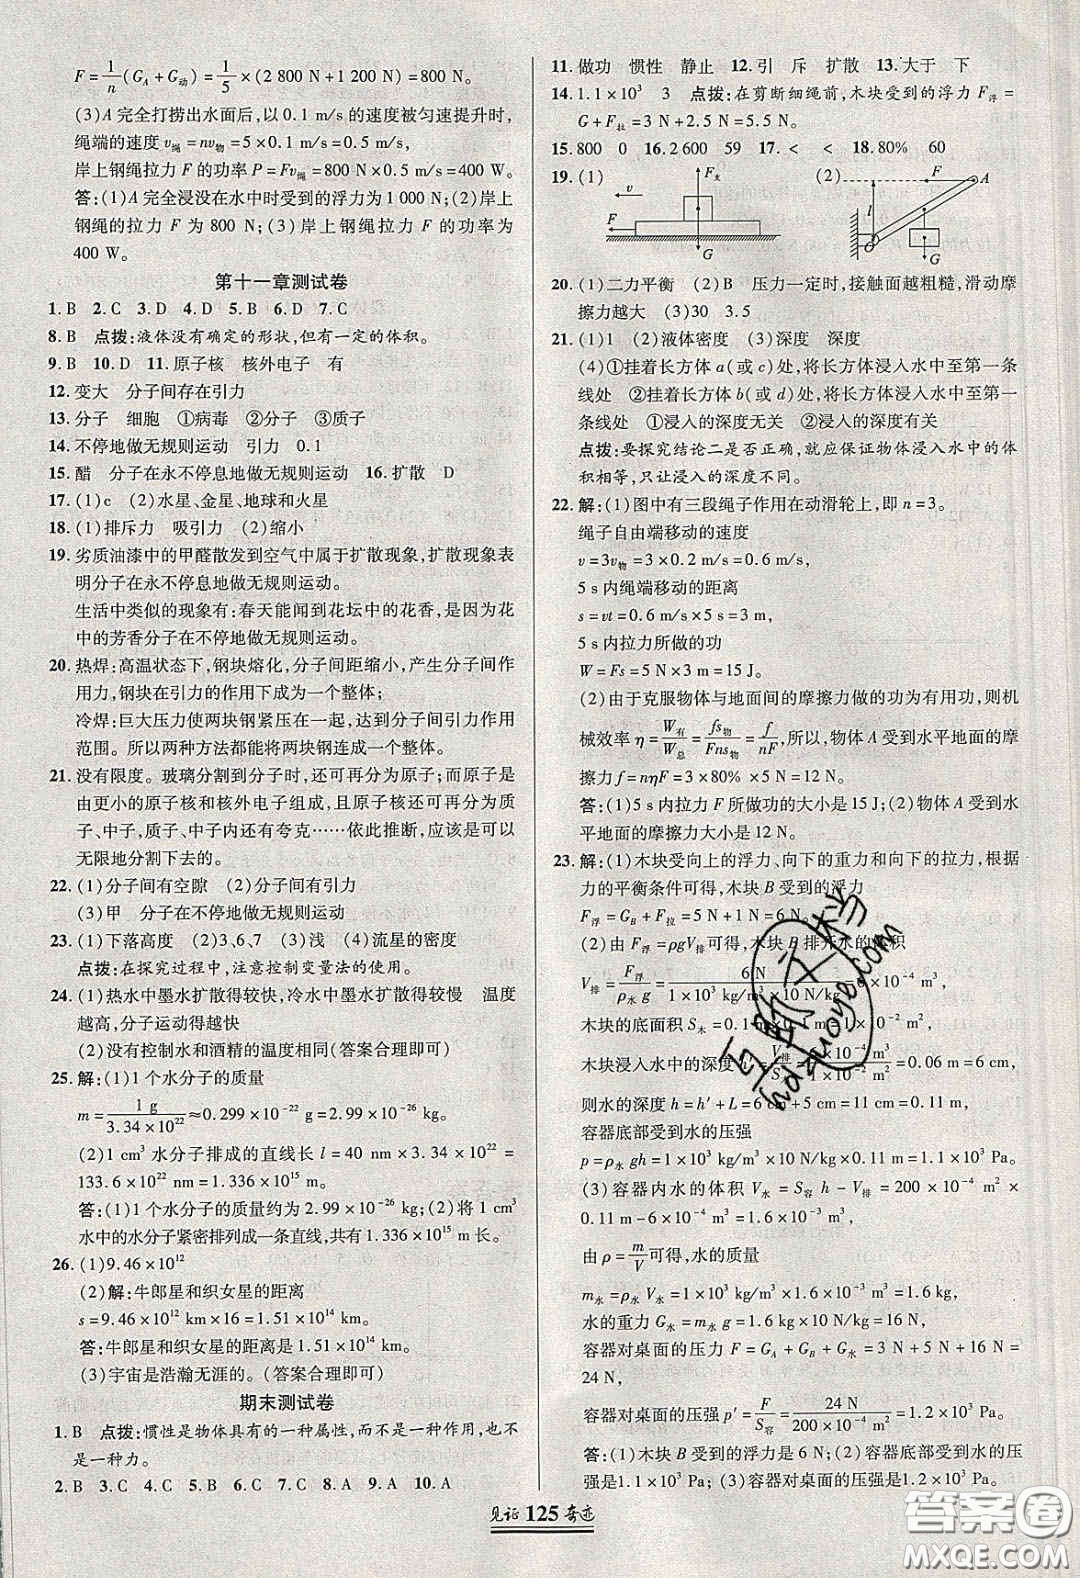 F=1/n(G_A+G_动)=1/5×(2 800 N+1 200 N)=800 N。
(3)A完全打捞出水面后,以0.1 m/s的速度被匀速提升时,
绳端的速度v_绳=nv_物=5×0.1 m/s=0.5 m/s,
岸上钢绳拉力F的功率P=Fv_绳=800 N×0.5 m/s=400 W。
答:(1)A完全浸没在水中时受到的浮力为1 000 N;(2)岸上
钢绳的拉力F为800 N;(3)岸上钢绳拉力F的功率为
400 W。
第十一章测试卷
1. B 2. C 3. D 4. C 5. D 6. D 7. C
8. B 点拨:液体没有确定的形状,但有一定的体积。
9. B 10. D 11. 原子核 核外电子 有
12. 变大 分子间存在引力
13. 分子 细胞 ①病毒 ②分子 ③质子
14. 不停地做无规则运动 引力 0.1
15. 醋 分子在永不停息地做无规则运动 16. 扩散 D
17. (1)c (2)水星、金星、地球和火星
18. (1)排斥力 吸引力 (2)缩小
19. 劣质油漆中的甲醛散发到空气中属于扩散现象,扩散现象表
明分子在永不停息地做无规则运动。
生活中类似的现象有:春天能闻到花坛中的花香,是因为花
中的芳香分子在不停地做无规则运动。
20. 热焊:高温状态下,钢块熔化,分子间距缩小,产生分子间作
用力,钢块在引力的作用下成为一个整体;
冷焊:巨大压力使两块钢紧压在一起,达到分子间引力作用
范围。所以两种方法都能将两块钢连成一个整体。
21. 没有限度。玻璃分割到分子时,还可再分为原子;而原子是
由更小的原子核和核外电子组成,且原子核还可再分成质
子、中子,质子、中子内还有夸克……依此推断,应该是可以
无限地分割下去的。
22. (1)分子间有空隙 (2)分子间有引力
(3)甲 分子在不停地做无规则运动
23. (1)下落高度 (2)3、6、7 (3)浅 (4)流星的密度
点拨:在探究过程中,注意控制变量法的使用。
24. (1)热水中墨水扩散得较快,冷水中墨水扩散得较慢 温度
越高,分子运动得越快
(2)没有控制水和酒精的温度相同(答案合理即可)
25. 解:(1)1个水分子的质量
m=1 g/3.34×10²²≈0.299×10⁻²² g=2.99×10⁻²⁶ kg。
(2)1 cm³水分子排成的直线长l=40 nm×3.34×10²²=
133.6×10²² nm=1.336×10¹⁵ m。
答:(1)1个水分子的质量约为2.99×10⁻²⁶ kg;(2)将1 cm³
水中的水分子紧密排列成一条直线,共有1.336×10¹⁵ m长。
26. (1)9.46×10¹²
(2)解:牛郎星和织女星的距离
s=9.46×10¹² km×16=1.51×10¹⁴ km。
答:牛郎星和织女星的距离是1.51×10¹⁴ km。
(3)宇宙是浩瀚无涯的。(答案合理即可)
期末测试卷
1. B 点拨:惯性是物体具有的一种属性,而不是一种作用,也不
是一种力。
2. B 3. C 4. D 5. C 6. C 7. C 8. A 9. A 10. A
11. 做功 惯性 静止 12. 引 斥 扩散 13. 大于 下
14. 1.1×10³ 3 点拨:在剪断细绳前,木块受到的浮力F_浮=
G+F_拉=3 N+2.5 N=5.5 N。
15. 800 0 16. 2 600 59 17. < < 18. 80% 60
19. (1) v F F_支 G (2) F A l O B G
20. (1)二力平衡 (2)B 压力一定时,接触面越粗糙,滑动摩
擦力越大 (3)30 3.5
21. (1)1 (2)液体密度 (3)深度 深度
(4)①挂着长方体a(或c)处,将长方体浸入水中至第一条
线处 ②挂着长方体b(或d)处,将长方体浸入水中至第一
条线处 ①浸入的深度无关 ②浸入的深度有关
点拨:要探究结论二是否正确,就应保证物体浸入水中的体
积相等,只让浸入的深度不同。
22. 解:(1)图中有三段绳子作用在动滑轮上,即n=3。
绳子自由端移动的速度
v=3v_物=3×0.2 m/s=0.6 m/s,
5 s内绳端移动的距离
s=vt=0.6 m/s×5 s=3 m,
5 s内拉力所做的功
W=Fs=5 N×3 m=15 J。
(2)由于克服物体与地面间的摩擦力做的功为有用功,则机
械效率η=W_有/W_总=fs_物/Fns_物=f/nF,所以,物体A受到水平地面的摩
擦力f=nηF=3×80%×5 N=12 N。
答:(1)5 s内拉力F所做功的大小是15 J;(2)物体A受到水
平地面的摩擦力大小是12 N。
23. 解:(1)木块受向上的浮力、向下的重力和向下的拉力,根据
力的平衡条件可得,木块B受到的浮力
F_浮=G_B+F_拉=5 N+1 N=6 N。
(2)由F_浮=ρgV_排可得,木块B排开水的体积
V_排=F_浮/ρ_水g=6 N/1×10³ kg/m³×10 N/kg=6×10⁻⁴ m³
木块的底面积S_木=0.1 m×0.1 m=1×10⁻² m²,
木块浸入水中的深度h′=V_排/S_木=6×10⁻⁴ m³/1×10⁻² m²=0.06 m=6 cm,
则水的深度h=h′+L=6 cm+5 cm=11 cm=0.11 m,
容器底部受到水的压强
p=ρ_水gh=1×10³ kg/m³×10 N/kg×0.11 m=1.1×10³ Pa。
(3)容器内水的体积V_水=S_容h-V_排=200×10⁻⁴ m²×
0.11 m-6×10⁻⁴ m³=1.6×10⁻³ m³,
由ρ=m/V可得,水的质量
m_水=ρ_水V_水=1×10³ kg/m³×1.6×10⁻³ m³=1.6 kg,
水的重力G_水=m_水g=1.6 kg×10 N/kg=16 N,
容器对桌面的压力F=G_A+G_B+G_水=3 N+5 N+16 N=
24 N,
容器对桌面的压强p′=F/S_容=24 N/200×10⁻⁴ m²=1.2×10³ Pa。
答:(1)木块B受到的浮力是6 N;(2)容器底部受到水的压
强是1.1×10³ Pa;(3)容器对桌面的压强是1.2×10³ Pa。
见证 125 奇迹
hdzuoye.com
答案圈
MXQE.COM